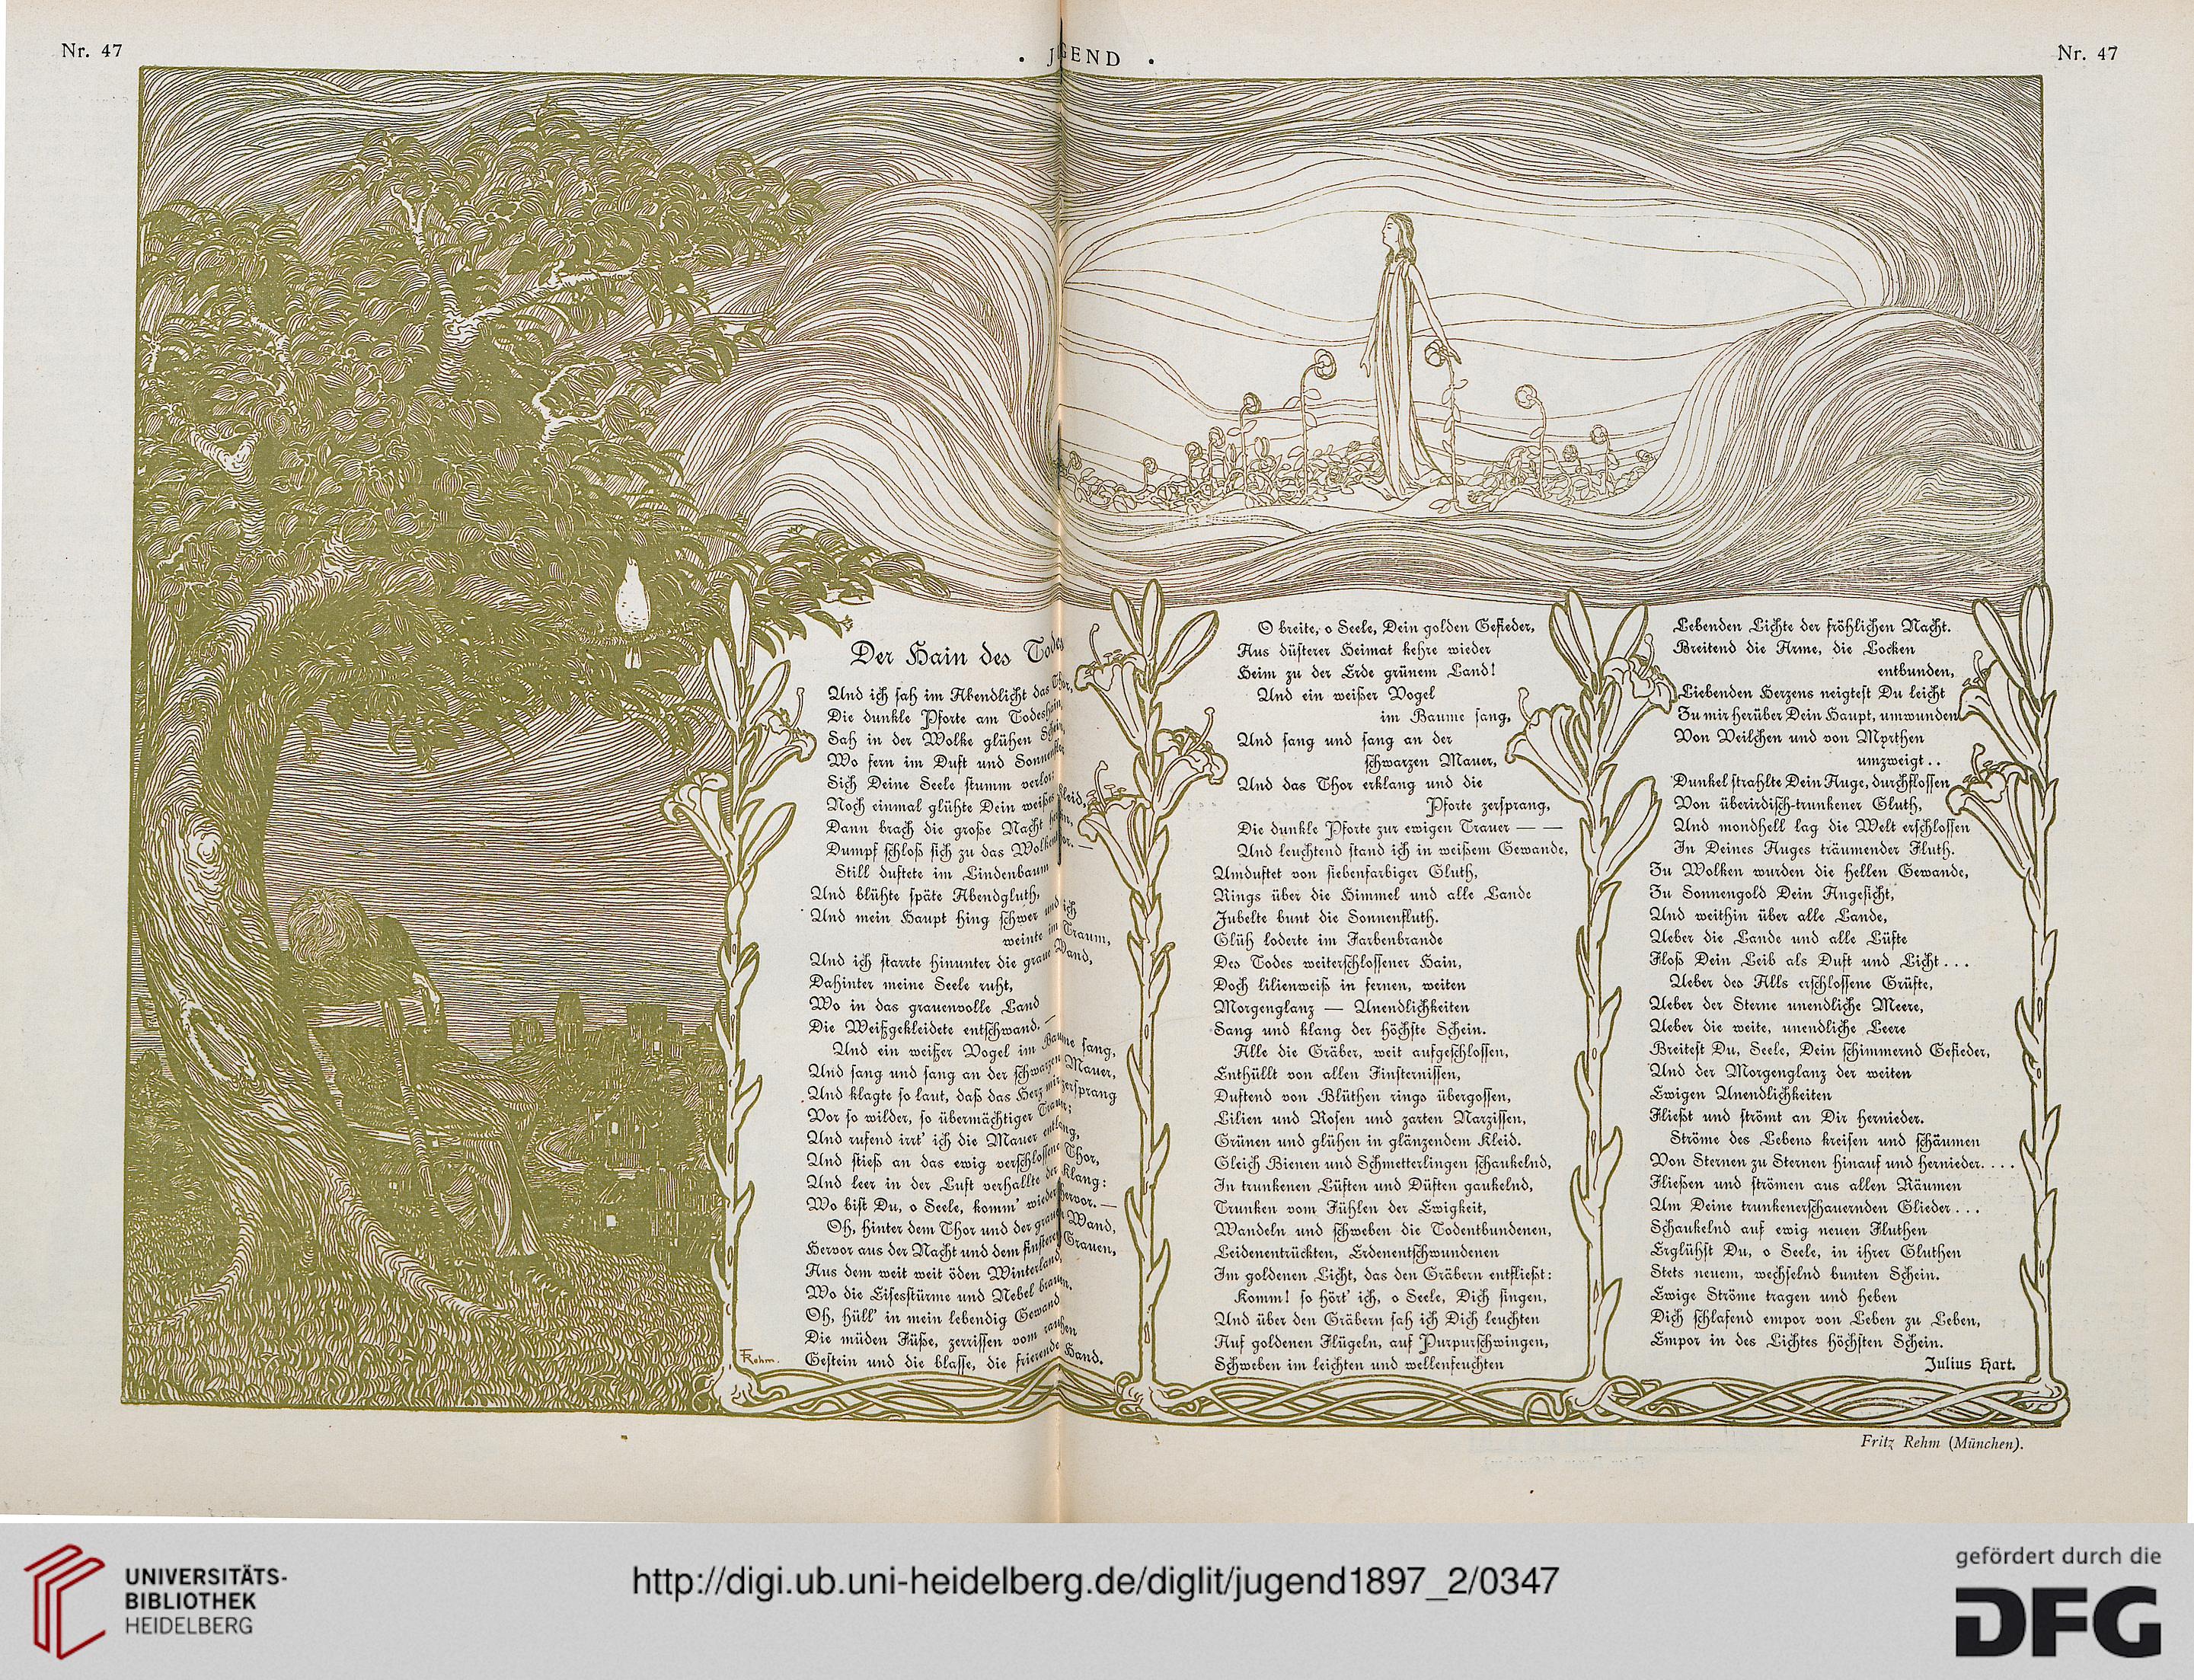 Nr. 47
• JUGEND •
Nr. 47
Der Hain des Todes
Und ich sah im Abendlicht das Thor,
Die dunkle Pforte am Todeshain,
Sah in der Wolke glühen Schein,
Wo fern im Duft und
Sich Deine Seele stumm verlor:
Noch einmal glühte Dein weißes Kleid,
Dann brach die große Nacht
Dumpf schloß sich zu das Wolkenthor. —
Still duftete im Lindenbaum
Und blühte späte Abendgluth,
Und mein Haupt hing schwer und ich
weinte im Traum,
Und ich starrte hinunter die graue Wand,
Dahinter meine Seele ruht,
Wo in das grauenvolle Land
Die Weißgekleidete entschwand. —
Und ein weißer Vogel im Baume sang,
Und sang und sang an der schwarzen Mauer,
Und klagte so laut, daß das Herz mir zersprang
Vor so wilder, so übermächtiger Trauer;
Und rufend irrt' ich die Mauer entlang,
Und stieß an das ewig verschlossene Thor,
Und leer in der Luft verhallte der Klang:
Wo bist Du, o Seele, komm' wieder hervor. —
Oh, hinter dem Thor und der grauen Wand,
Hervor aus der Nacht und dem finsteren Grauen,
Aus dem weit weit öden Winterland,
Wo die Eisesstürme und Nebel brauen.
Oh, hüll' in mein lebendig Gewand
Die müden Füße, zerrissen vom rauhen
Gestein und die blasse, die frierende Hand.
Rehm.
O breite, o Seele, Dein golden Gefieder,
Aus düsterer Heimat kehre wieder
Heim zu der Erde grünem Land!
Und ein weißer Vogel
im Baume sang,
Und sang und sang an der
schwarzen Mauer,
Und das Thor erklang und die
Pforte zersprang,
Die dunkle Pforte zur ewigen Trauer — —
Und leuchtend stand ich in weißem Gewande,
Umduftet von siebenfarbiger Gluth,
Rings über die Himmel und alle Lande
Jubelte bunt die Sonnenfluth.
Glüh loderte im Farbenbrande
Des Todes weiterschlossener Hain,
Doch lilienweiß in fernen, weiten
Morgenglanz — Unendlichkeiten
Sang und klang der höchste Schein.
Alle die Gräber, weit aufgeschlossen,
Enthüllt von allen Finsternissen,
Duftend von Blüthen rings übergossen,
Lilien und Rosen und zarten Narzissen,
Grünen und glühen in glänzendem Kleid.
Gleich Bienen und Schmetterlingen schaukelnd,
In trunkenen Lüften und Düften gaukelnd,
Trunken vom Fühlen der Ewigkeit,
Wandeln und schweben die Todentbundenen,
Leidenentrückten, Erdenentschwundenen
Im goldenen Licht, das den Gräbern entfließt:
Komm! so hört' ich, o Seele, Dich singen,
Und über den Gräbern sah ich Dich leuchten
Auf goldenen Flügeln, auf Purpurschwingen,
Schweben im leichten und wellenfeuchten
Lebenden Lichte der fröhlichen Nacht.
Breitend die Arme, die Locken
entbunden,
Liebenden Herzens neigtest Du leicht
Zu mir herüber Dein Haupt, umwunden
Von Veilchen und von Myrthen
umzweigt . .
Dunkel strahlte Dein Auge, durchflossen
Von überirdisch-trunkener Gluth,
Und mondhell lag die Welt erschlossen
In Deines Auges träumender Fluth.
Zu Wolken wurden die hellen Gewande,
Zu Sonnengold Dein Angesicht,
Und weithin über alle Lande,
Ueber die Lande und alle Lüfte
Floß Dein Leib als Duft und Licht . . .
Ueber des Alls erschlossene Grüfte,
Ueber der Sterne unendliche Meere,
Ueber die weite, unendliche Leere
Breitest Du, Seele, Dein schimmernd Gefieder,
Und der Morgenglanz der weiten
Ewigen Unendlichkeiten
Fließt und strömt an Dir hernieder.
Ströme des Lebens kreisen und schäumen
Von Sternen zu Sternen hinauf und hernieder. . . .
Fließen und strömen aus allen Räumen
Um Deine trunkenerschauernden Glieder . . .
Schaukelnd auf ewig neuen Fluthen
Erglühst Du, o Seele, in ihrer Gluthen
Stets neuem, wechselnd bunten Schein.
Ewige Ströme tragen und heben
Dich schlafend empor von Leben zu Leben,
Empor in des Lichtes höchsten Schein.
Julius Hart.
Fritz Rehm (München).
UNIVERSITÄTS-
BIBLIOTHEK
HEIDELBERG
http://digi.ub.uni-heidelberg.de/diglit/jugend1897_2/0347
gefördert durch die
DFG